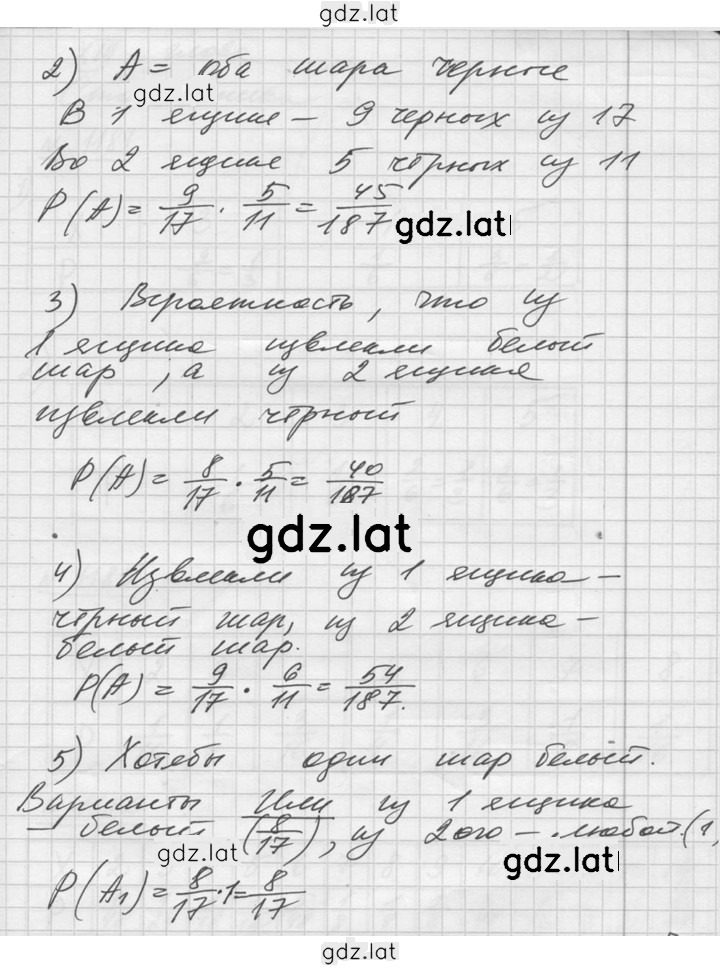 gdz.lat
2) A = оба шара черные
gdz.lat
В 1 ящике – 9 черных из 17
Во 2 ящике 5 чёрных из 11
P(A) = 9/17 · 5/11 = 45/187
gdz.lat
3) Вероятность, что из
1 ящика извлекли белый
шар, а из 2 ящика
извлекли чёрный
P(A) = 8/17 · 5/11 = 40/187
gdz.lat
4) Извлекли из 1 ящика –
чёрный шар, из 2 ящика –
белый шар.
P(A) = 9/17 · 6/11 = 54/187.
5) Хотебы один шар белый.
Варианты Или из 1 ящика
– белый (8/17), из 2ого – любой (1,
gdz.lat
gdz.lat
P(A₁) = 8/17 · 1 = 8/17
gdz.lat